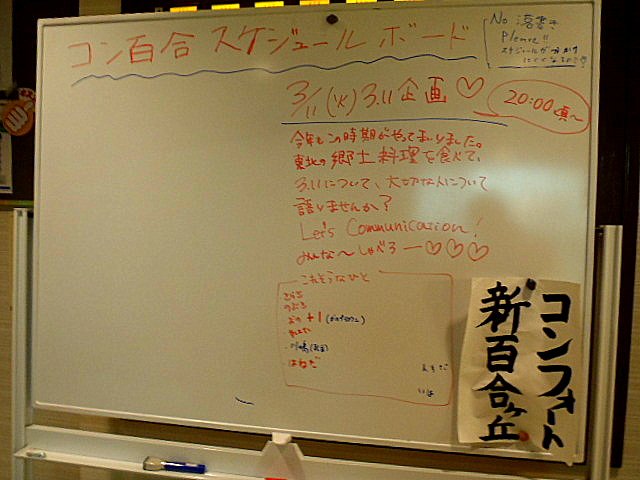 コン百合 スケジュール ボード
No 落書き
Please!!
スケジュールが
3/11(火) 3.11企画♡
20:00頃〜
今年もこの時期がやってまいりました。
東北の郷土料理を食べて、
3.11について、大切な人について
語りませんか？
Let's Communication!
みんな〜しゃべろー♡♡♡
これそうなひと
+1
はねだ
コンフォート
新百合ヶ丘